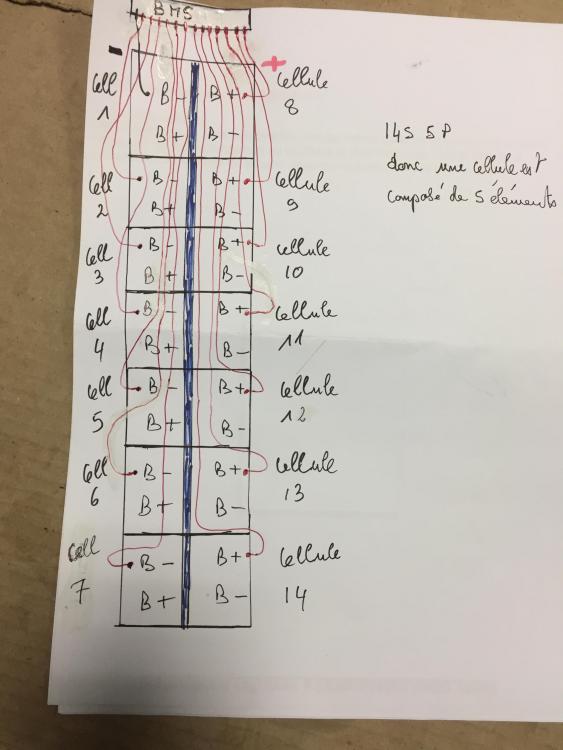 BMS
-
+
Cell 1
B -
B +
B +
B -
Cellule 8
Cell 2
B -
B +
B +
B -
Cellule 9
Cell 3
B -
B +
B +
B -
Cellule 10
Cell 4
B -
B +
B +
B -
Cellule 11
Cell 5
B -
B +
B +
B -
Cellule 12
Cell 6
B -
B +
B +
B -
Cellule 13
Cell 7
B -
B +
B +
B -
Cellule 14
14S 5P
donc une cellule est
composé de 5 éléments